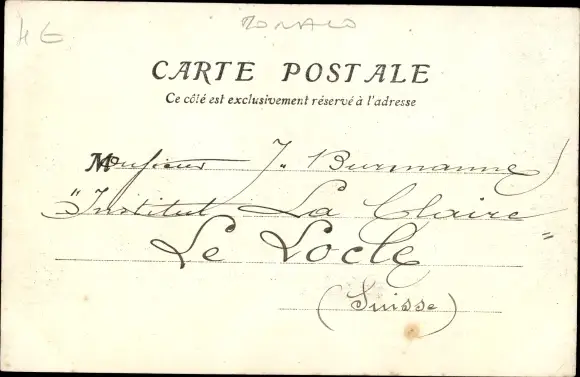 4€ MONACO
CARTE POSTALE
Ce côté est exclusivement réservé à l'adresse
Monsieur J. Burmanne
"Institut La Claire"
Le Locle
(Suisse)